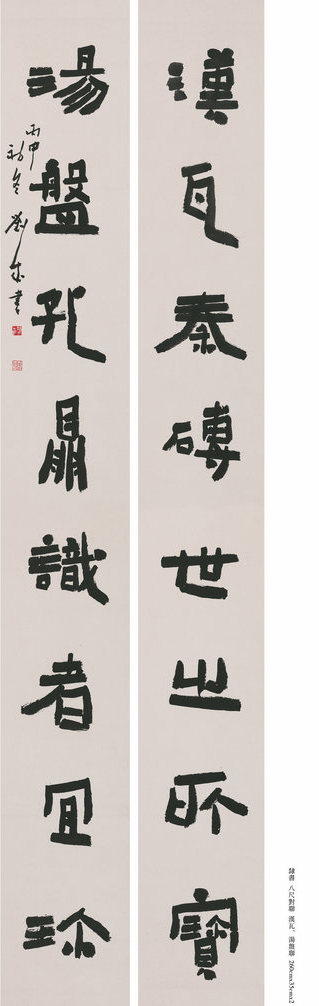 漢瓦秦磚世之所寶
湯盤孔鼎識者宜珍
丙申初冬劉書
隸書 八尺對聯 漢瓦、湯盤聯 260cmx35cmx2